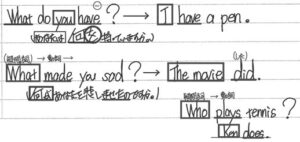 What do you have ? → I have a pen.
(あなたは 何を 持っていますか。)
(疑問詞) → 動詞 → (した)
What made you sad ? → The movie did.
(何があなたを悲しませたのですか。)
疑問詞 → 動詞
Who plays tennis ?
Ken does.